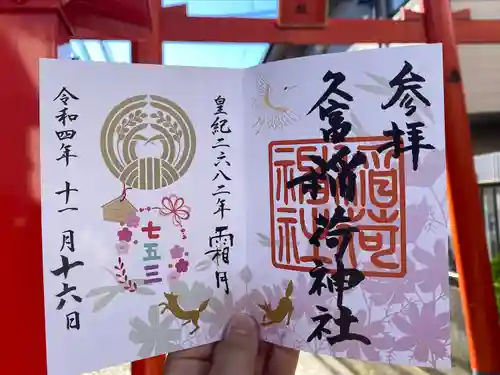 参拝
久富稲荷神社
稲荷
神社
皇紀二六八二年 霜月
七五三
令和四年 十一月 十六日